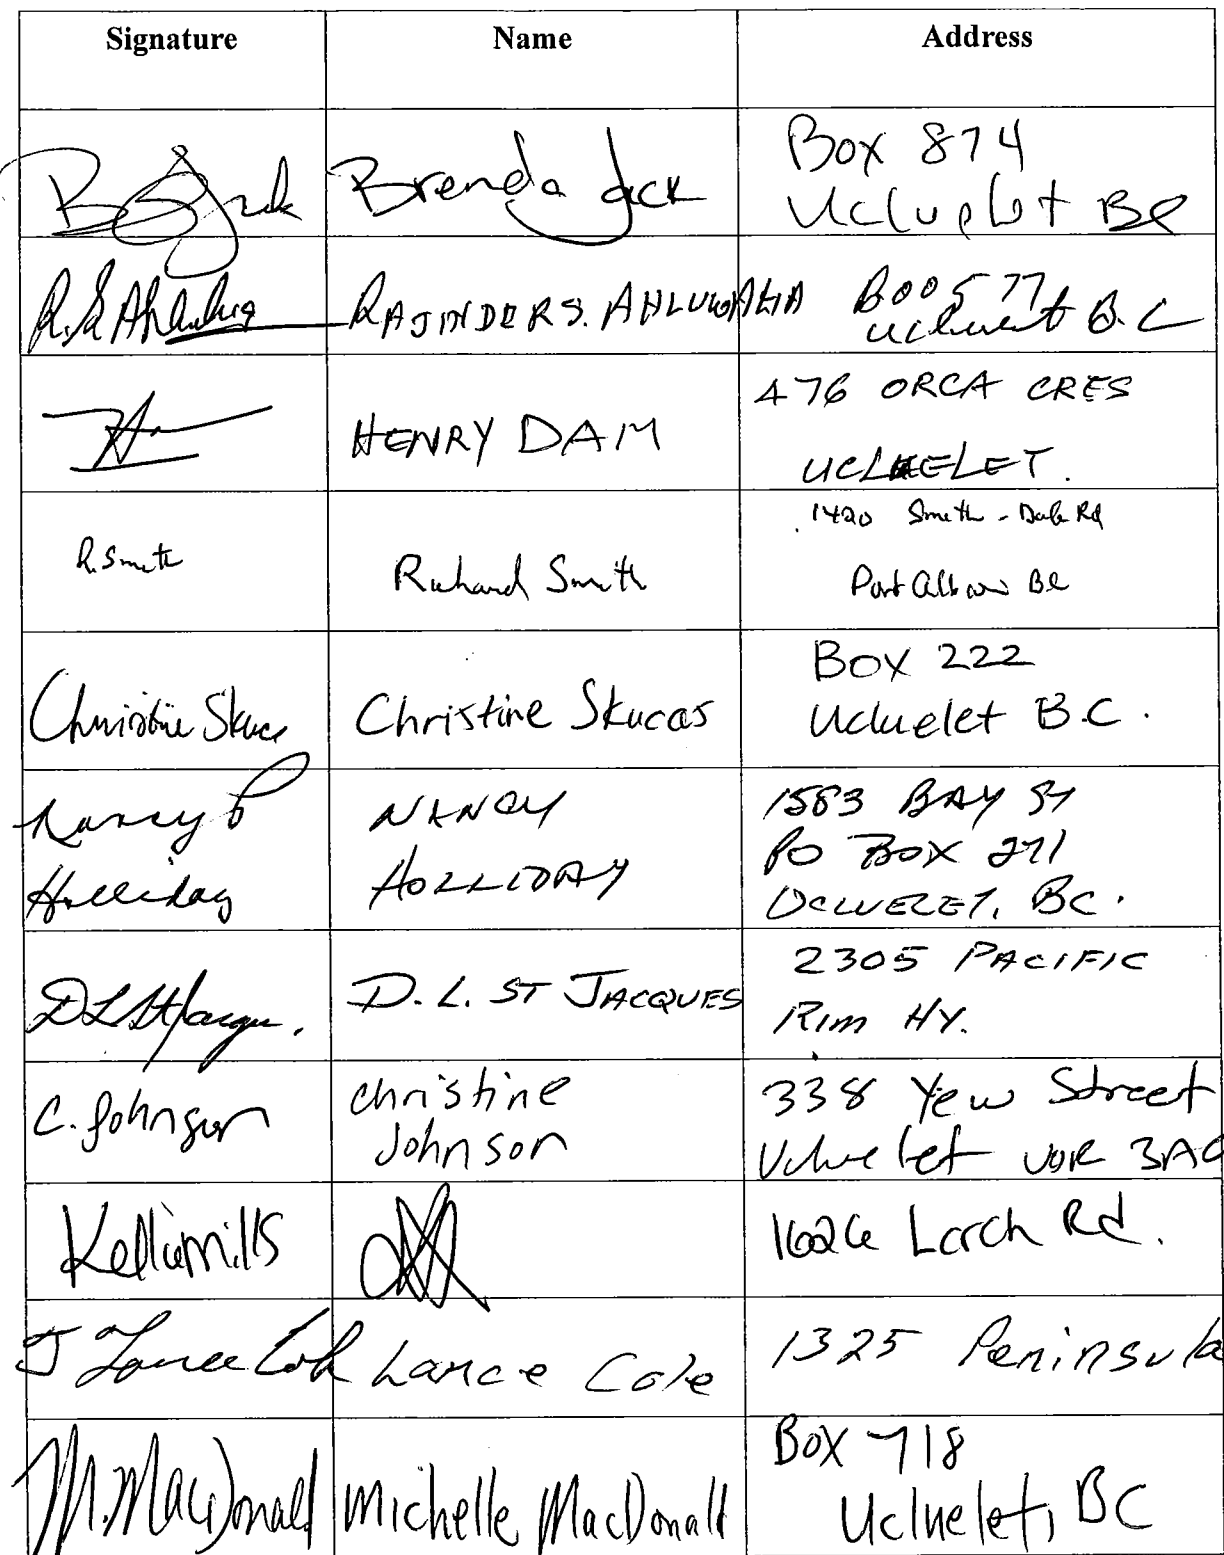 Signature Name Address
B Jack Brenda Jack Box 874
Ucluelet BC
R.S. Ahluwalia RAJINDER S. AHLUWALIA Box 577
Ucluelet B.C
HENRY DAM 476 ORCA CRES
UCLUELET.
R. Smith Richard Smith 1420 Smith - Dale Rd
Port Alberni BC
Christine Skucas Christine Skucas Box 222
Ucluelet B.C.
Nancy P NANCY 1583 BAY ST
Holliday HOLLIDAY PO BOX 271
UCLUELET, BC.
D L St Jacques. D. L. ST JACQUES 2305 PACIFIC
RIM HY.
C. Johnson Christine 338 Yew Street
Johnson Ucluelet V0R 3A0
Kellie Mills 1626 Larch Rd.
J Lance Cole Lance Cole 1325 Peninsula
M. MacDonald Michelle MacDonald Box 718
Ucluelet, BC